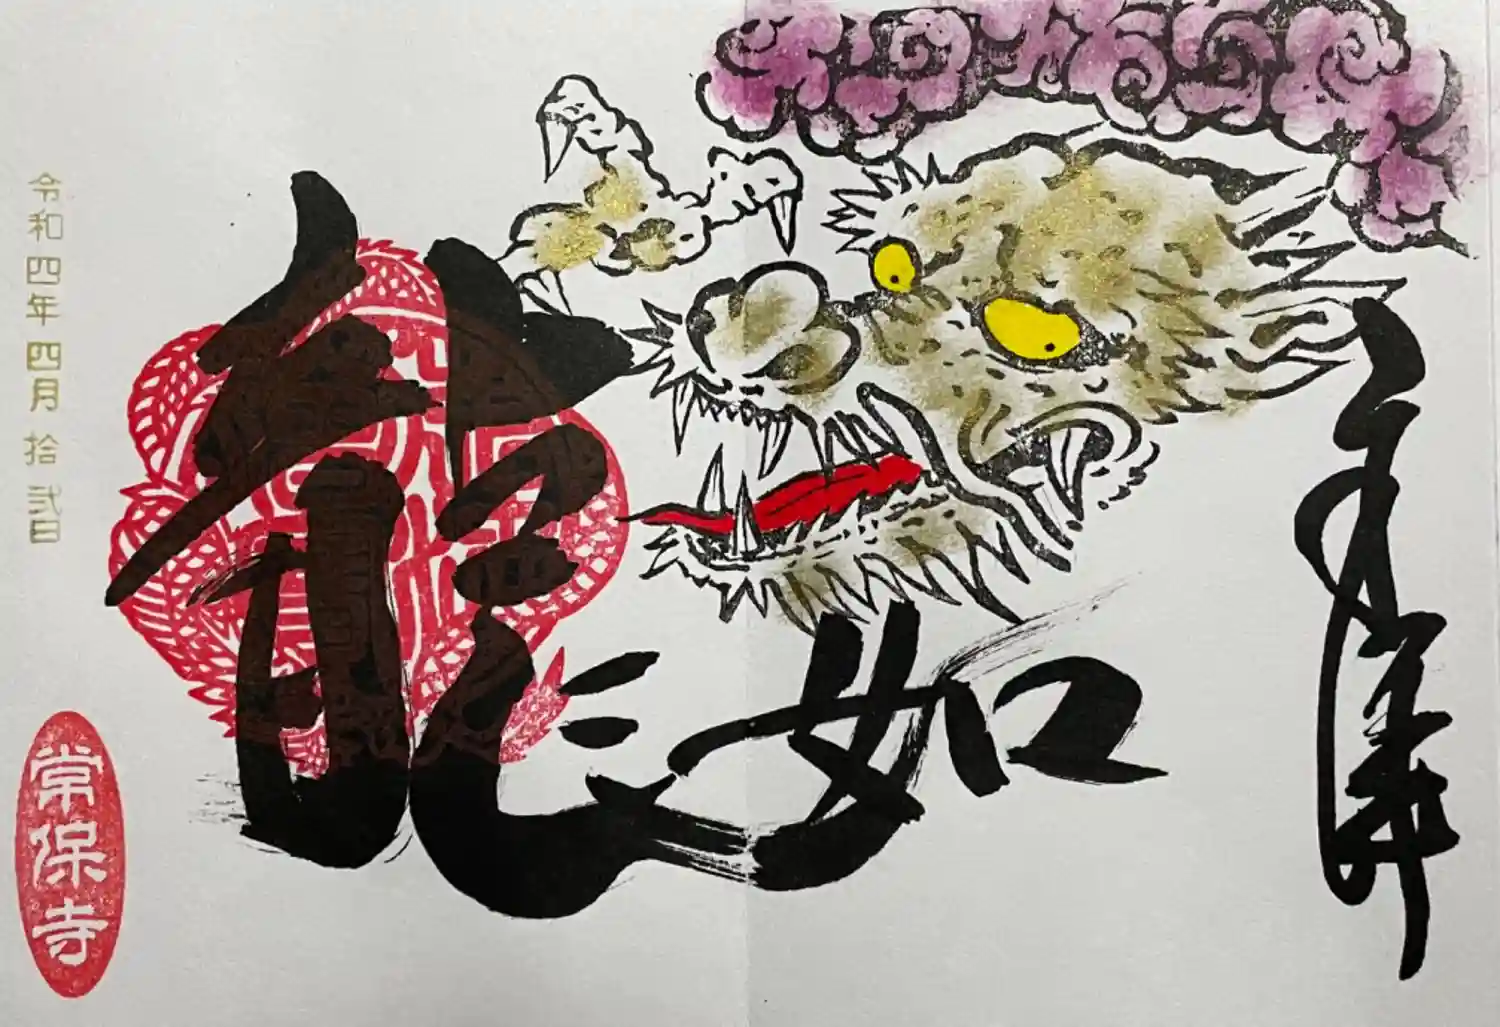 奉拝
如龍
令和四年四月拾弐日
常保寺